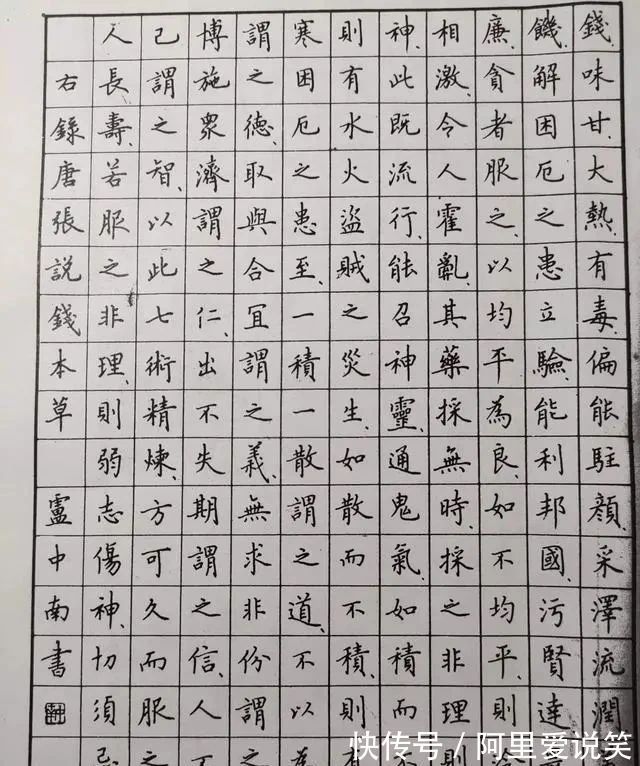 錢、味甘、大熱、有毒、偏能駐顏、采澤流潤
饑、解困厄之患立驗、能利邦國、污賢達
廉、貪者服之、以均平為良、如不均平、則冷
相激、令人霍亂、其藥採無時、採之非理則
神、此既流行、能召神靈、通鬼氣、如積而不
則有水火盜賊之災生、如散而不積、則
寒困厄之患至、一積一散謂之道、不以為
謂之德、取與合宜謂之義、無求非份謂之
博施眾濟謂之仁、出不失期謂之信、人不
己謂之智、以此七術精煉方可久而服之
人長壽、若服之非理、則弱志傷神、切須忌
右錄唐張說錢本草 盧中南書
快传号/阿里爱说笑